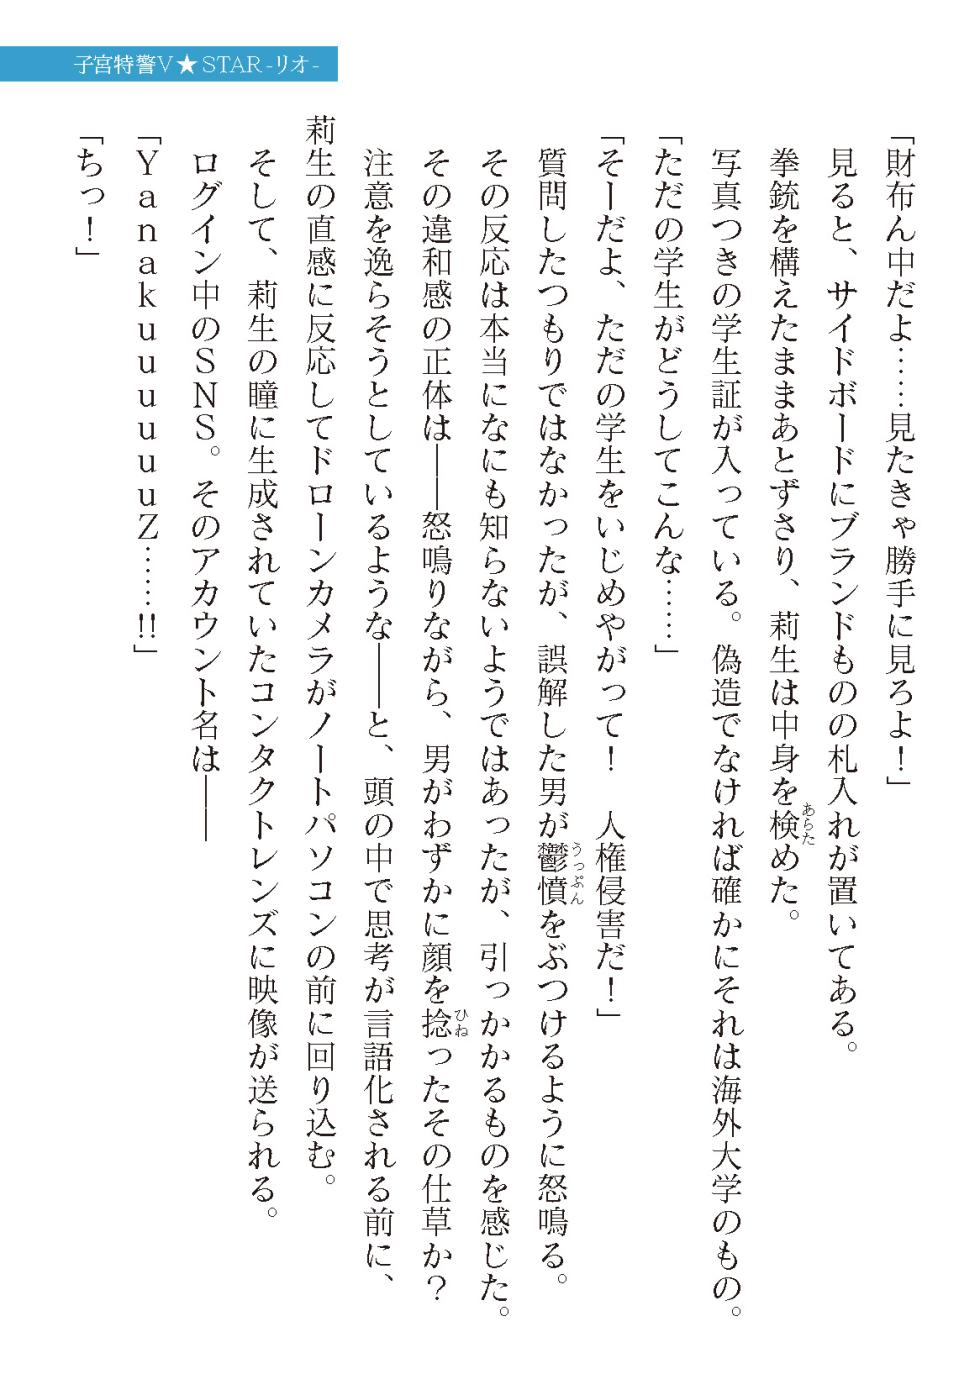 子宮特警V★STAR -リオ-
「財布ん中だよ……見たきゃ勝手に見ろよ！」
見ると、サイドボードにブランドものの札入れが置いてある。
拳銃を構えたままあとずさり、莉生は中身を検めた。
あらた
写真つきの学生証が入っている。偽造でなければ確かにそれは海外大学のもの。
「ただの学生がどうしてこんな……」
「そーだよ、ただの学生をいじめやがって！　人権侵害だ！」
質問したつもりではなかったが、誤解した男が鬱憤をぶつけるように怒鳴る。
うっぷん
その反応は本当になにも知らないようではあったが、引っかかるものを感じた。
その違和感の正体は――怒鳴りながら、男がわずかに顔を捻ったその仕草か？
ひね
注意を逸らそうとしているような――と、頭の中で思考が言語化される前に、
莉生の直感に反応してドローンカメラがノートパソコンの前に回り込む。
そして、莉生の瞳に生成されていたコンタクトレンズに映像が送られる。
ログイン中のSNS。そのアカウント名は――
「YanakuuuuuZ……!!」
「ちっ！」